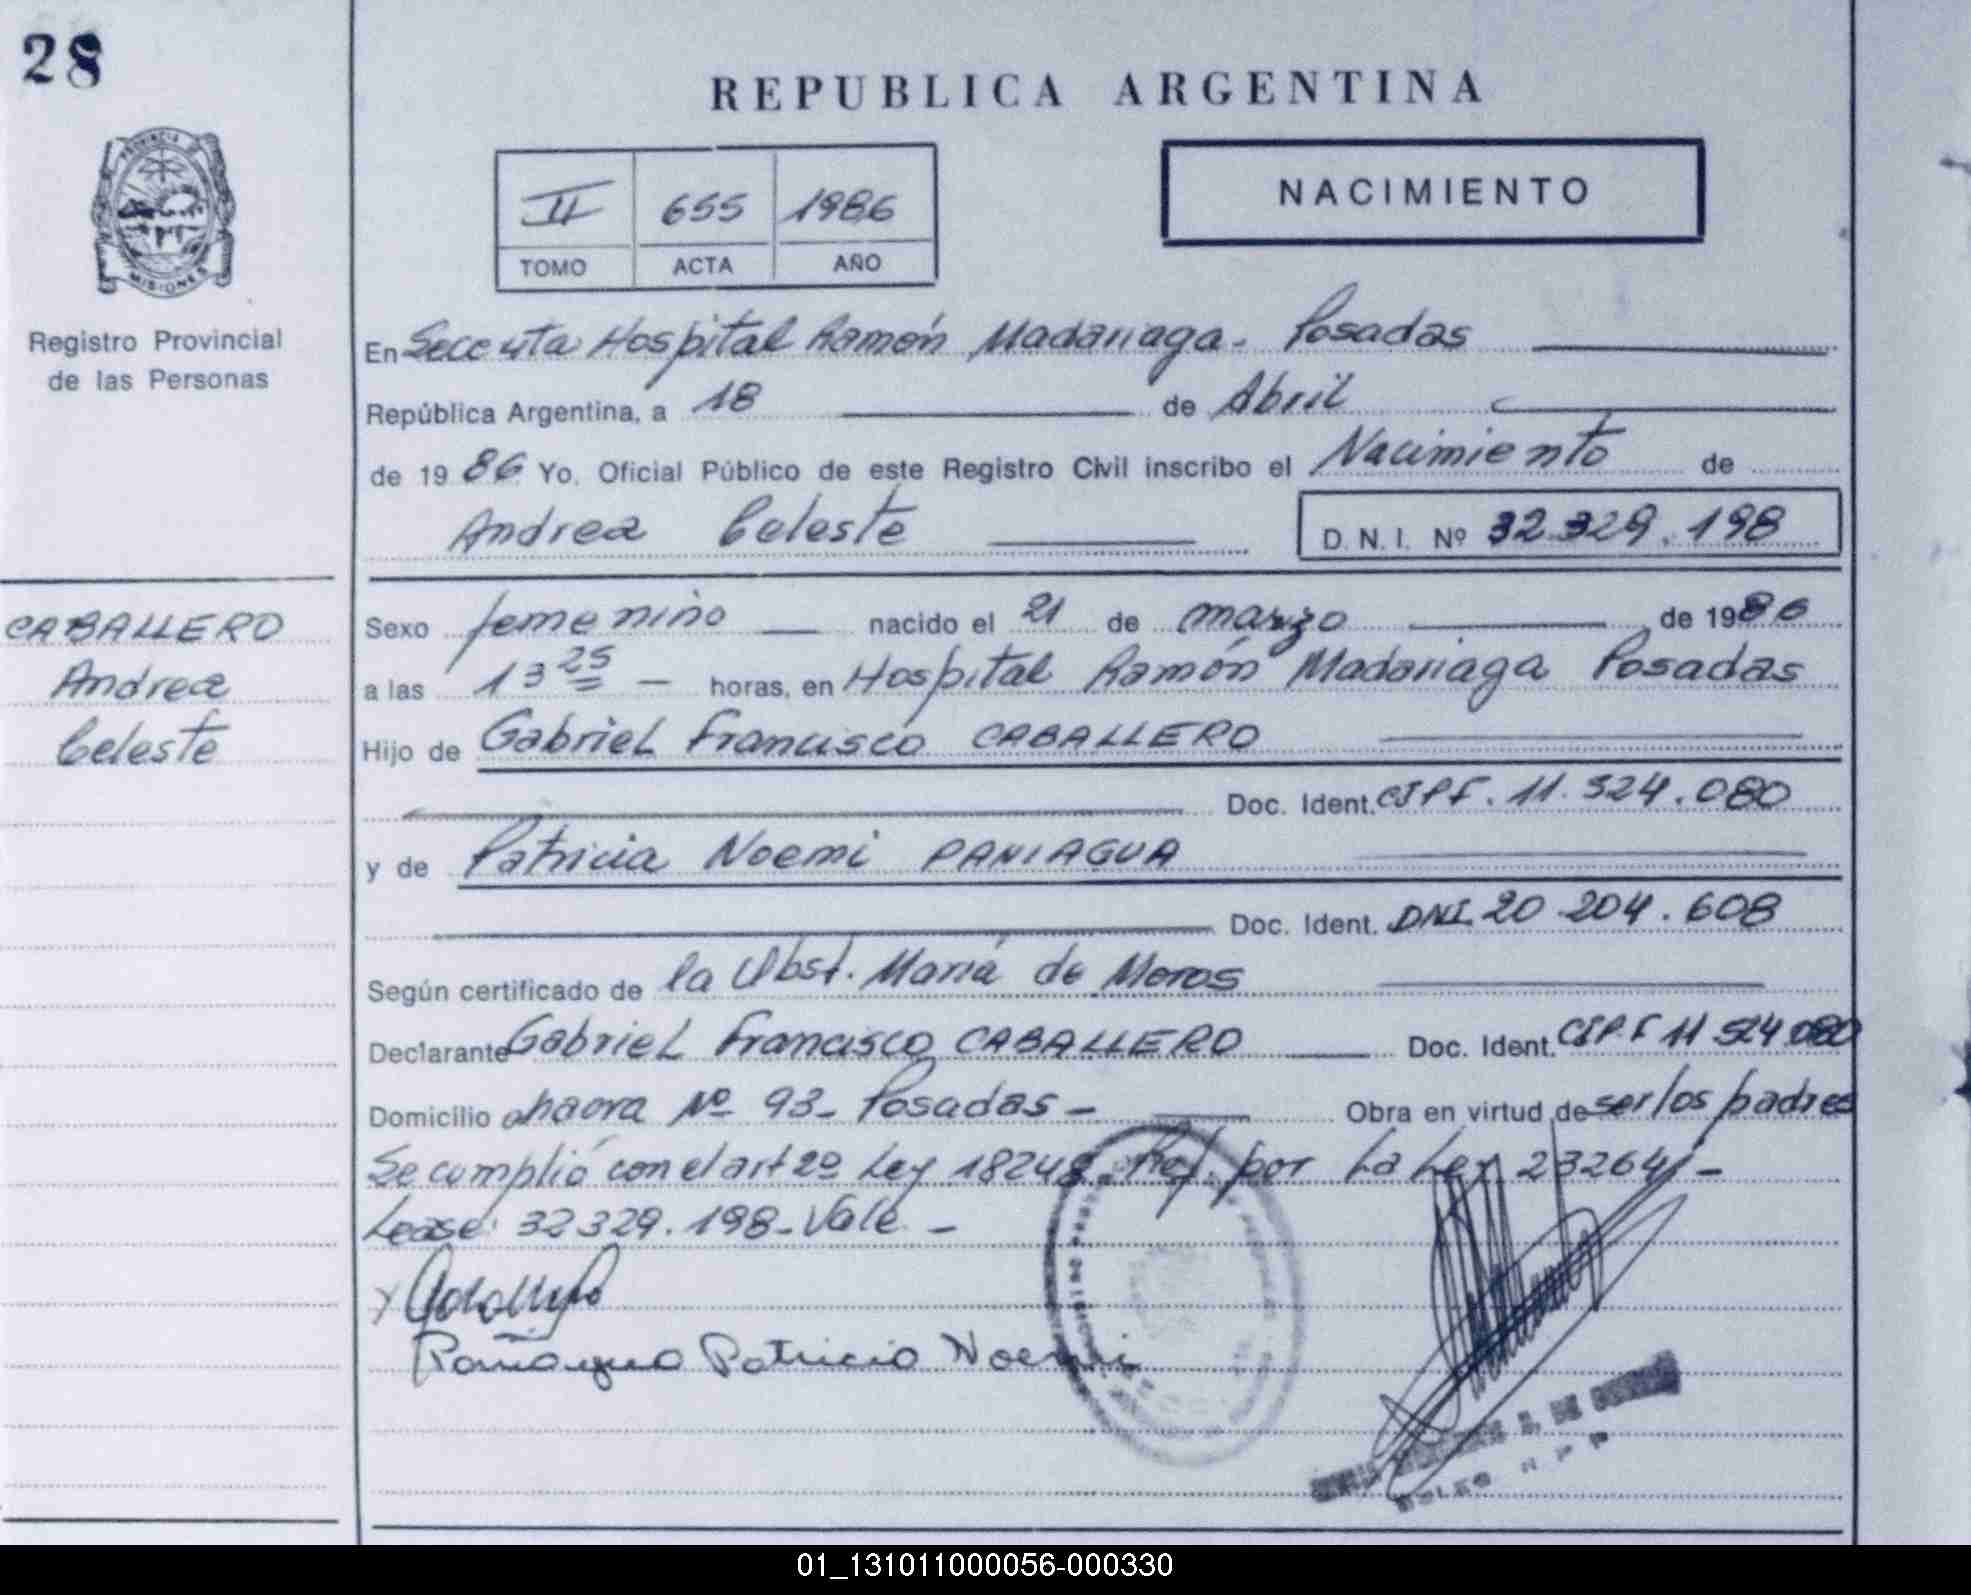 28
REPUBLICA ARGENTINA
NACIMIENTO
II 655 1986
TOMO ACTA AÑO
PROVINCIA DE
MISIONES
Registro Provincial
de las Personas
En Secc 4ta Hospital Ramón Madariaga - Posadas
República Argentina, a 18 de Abril
de 1986 Yo, Oficial Público de este Registro Civil inscribo el Nacimiento de
Andrea Celeste D. N. I. Nº 32.329.198
CABALLERO
Andrea
Celeste
Sexo femenino nacido el 21 de marzo de 1986
a las 13 25 horas, en Hospital Ramón Madariaga Posadas
Hijo de Gabriel Francisco CABALLERO
Doc. Ident. CIPF. 11.524.080
y de Patricia Noemi PANIAGUA
Doc. Ident. DNI 20.204.608
Según certificado de la Obst. María de Moros
Declarante Gabriel Francisco CABALLERO Doc. Ident. CIPF 11 524 080
Domicilio chacra Nº 93 - Posadas - Obra en virtud de ser los padres
Se cumplió con el art 2º Ley 18248 Ref. por La Ley 23264 -
Lease: 32329.198 - Vale -
Paniagua Patricia Noemi
01_131011000056-000330